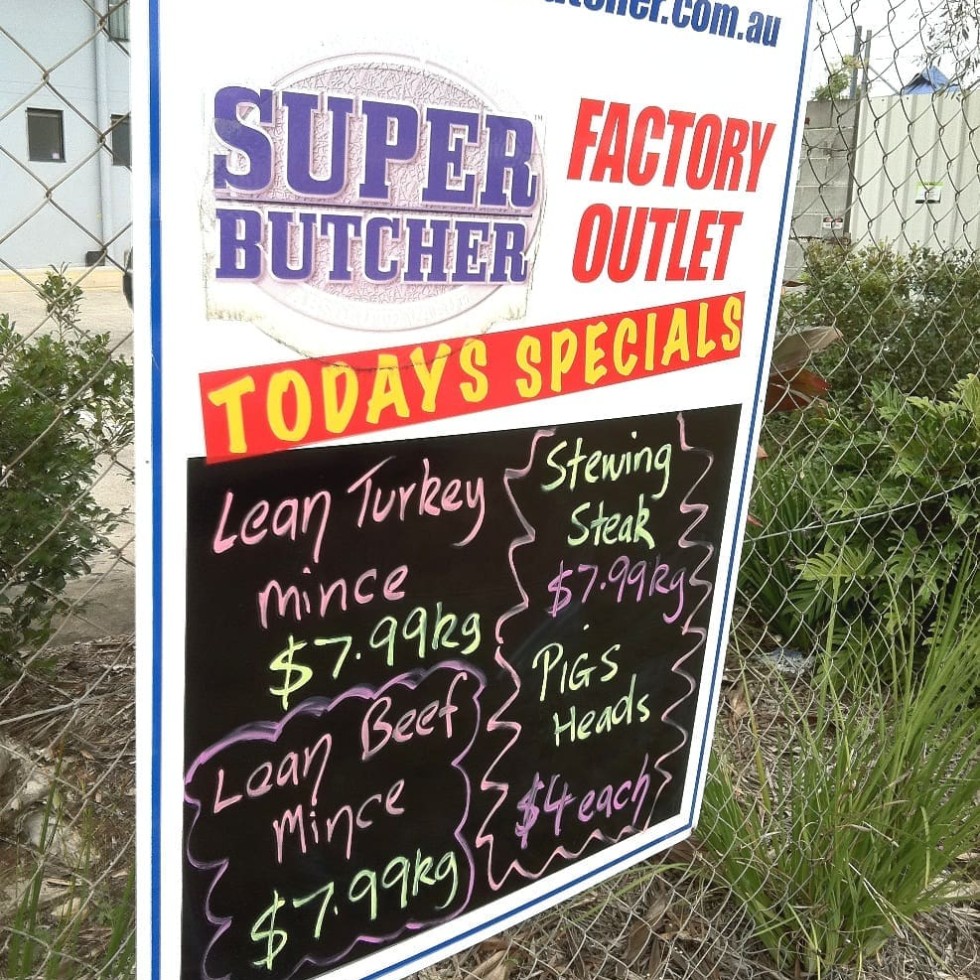 .com.au
SUPER
BUTCHER
™
FACTORY
OUTLET
TODAYS SPECIALS
Lean Turkey
mince
$7.99kg
Lean Beef
Mince
$7.99kg
Stewing
Steak
$7.99kg
PiGS
Heads
$4 each